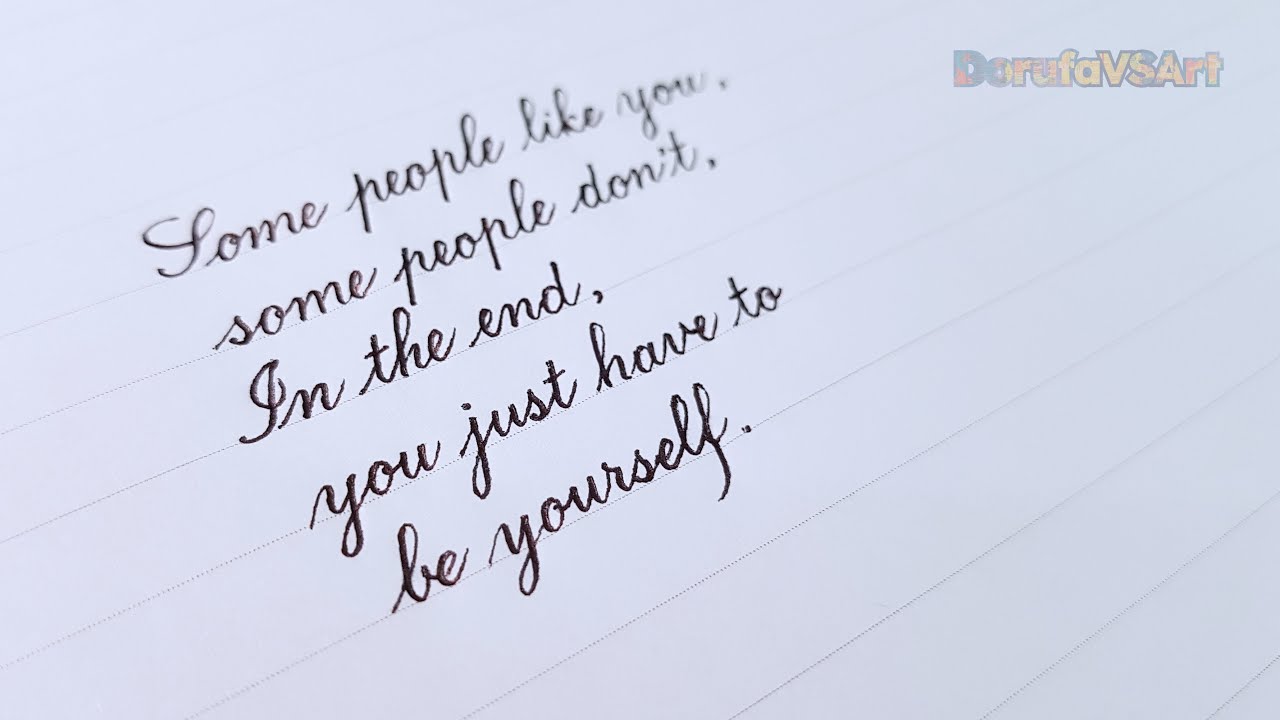 DorufaVSArt
Some people like you,
some people don't,
In the end,
you just have to
be yourself.